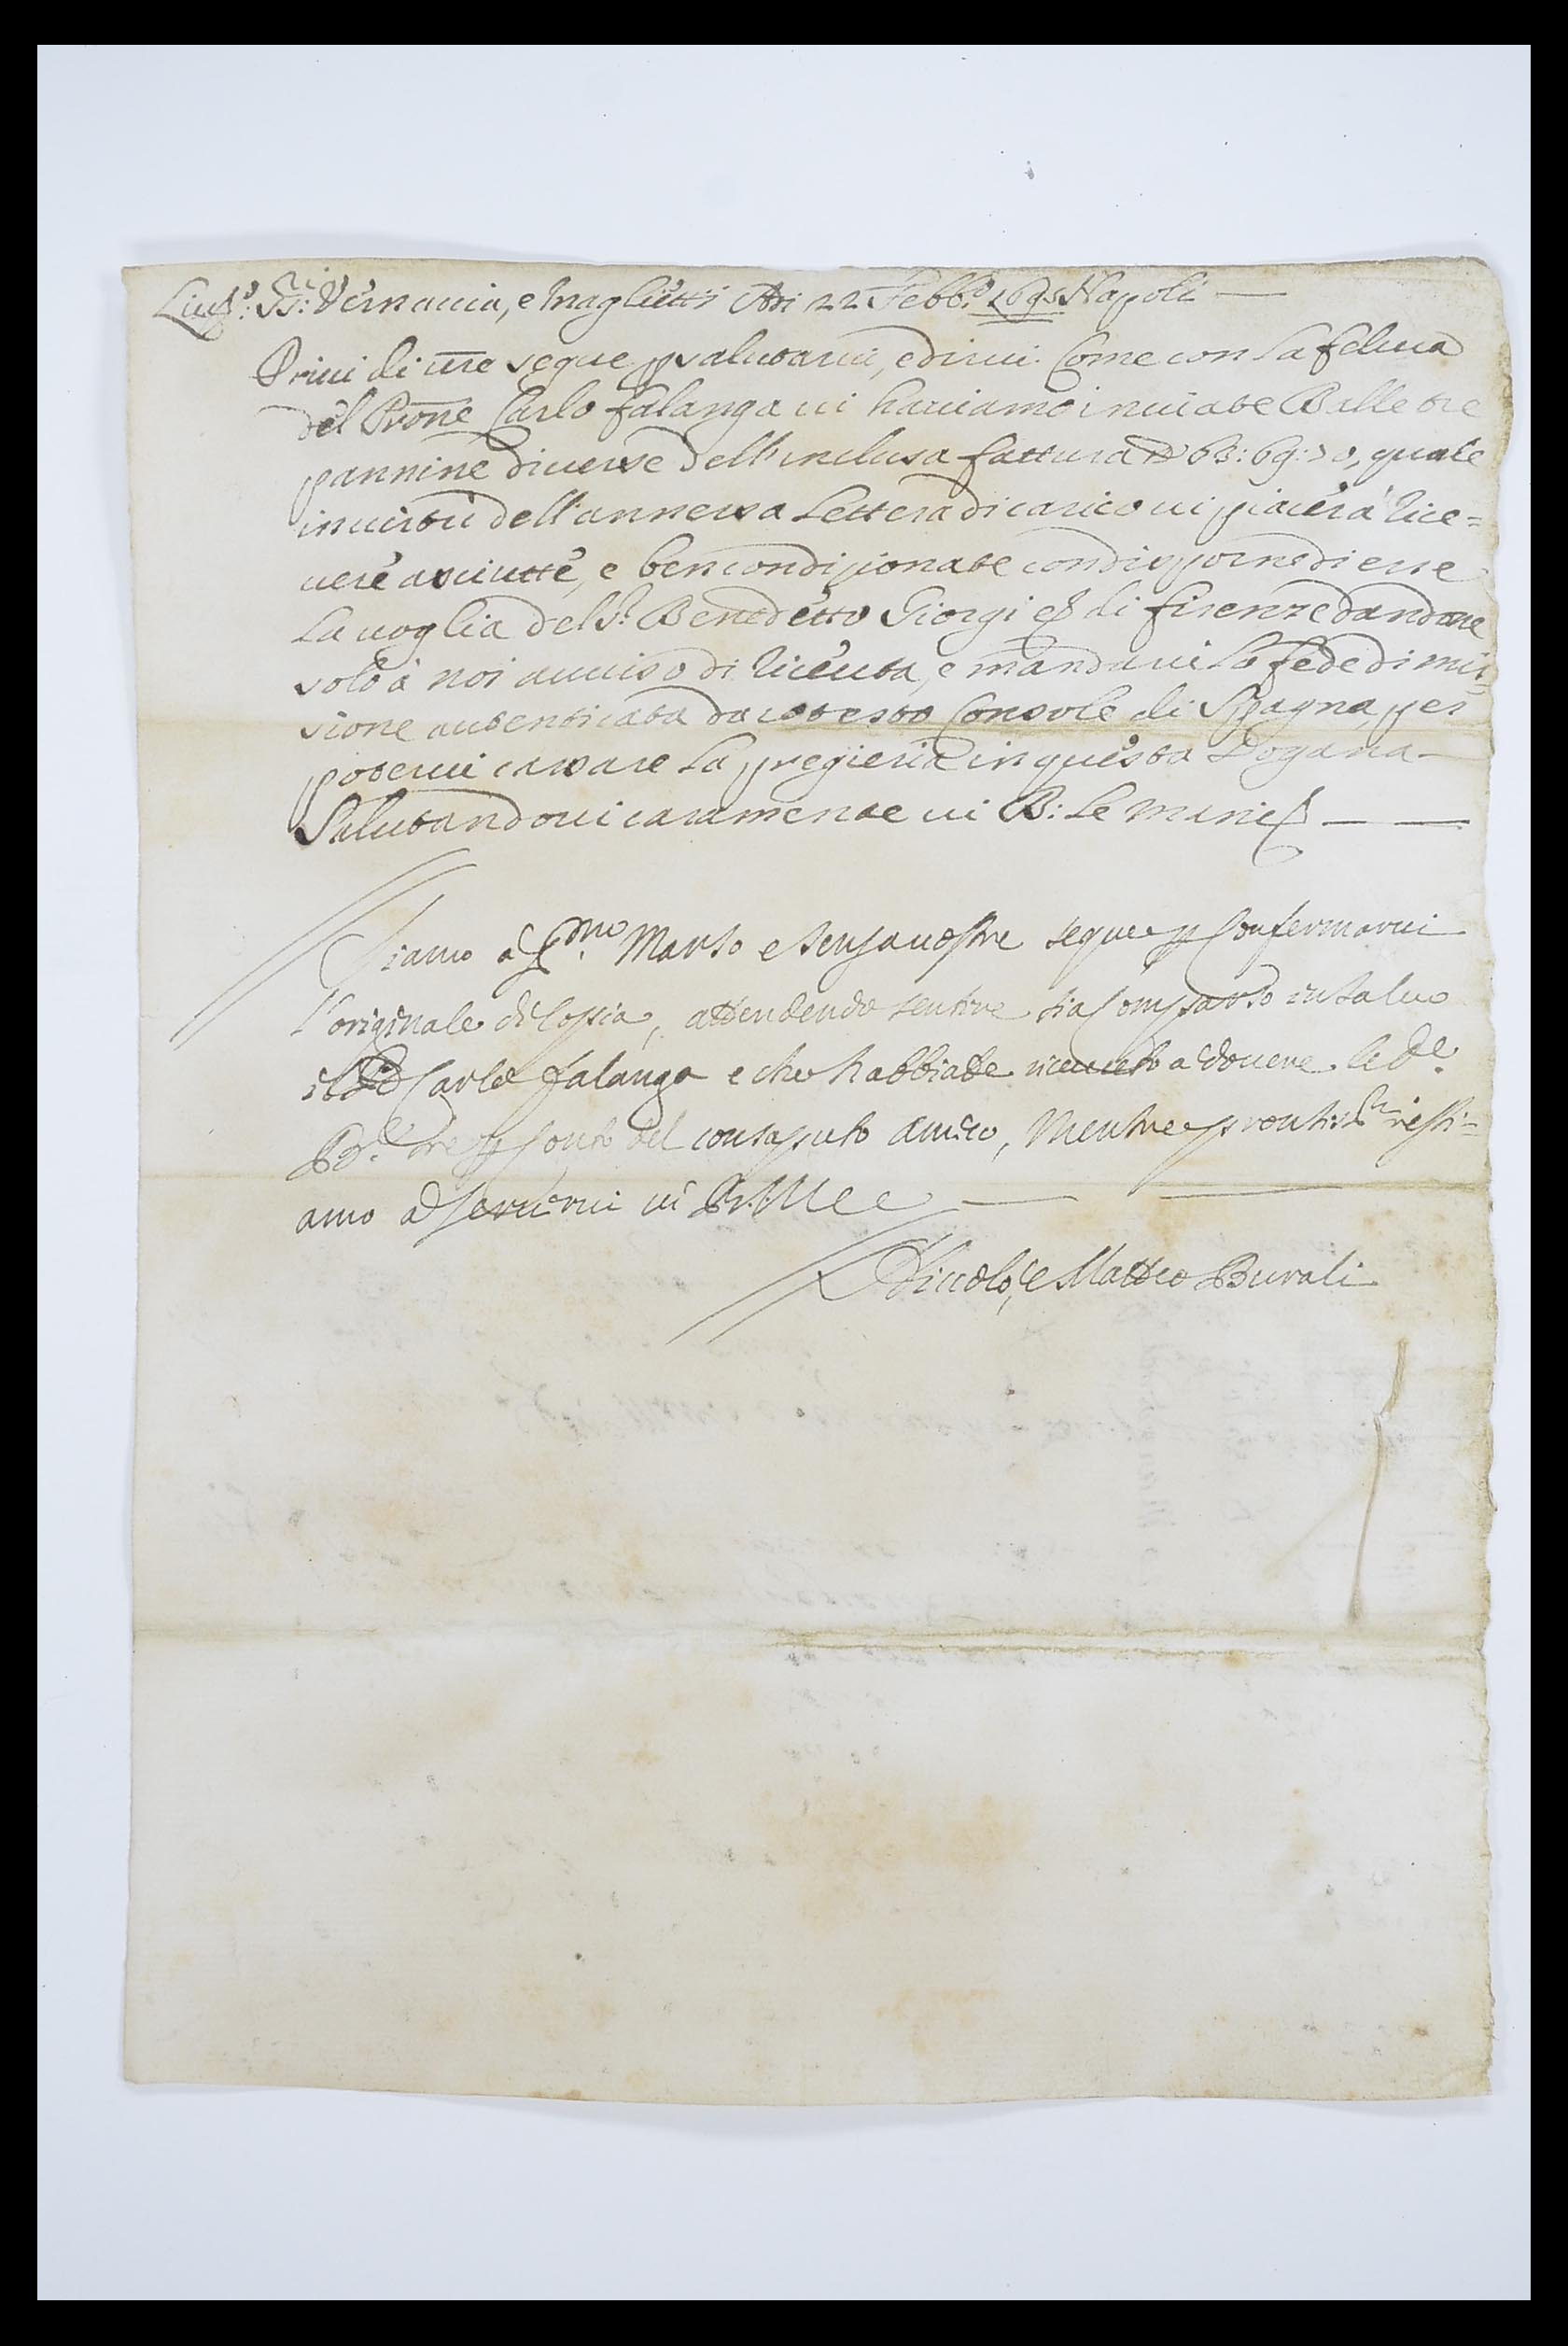 Liuo: SS:ri Vernaccia, e Maglietti Adi 22 Febb:o 1695 Napoli
Priui di vre segue p salutarui, e dirui Come con la feluca
del Prone Carlo falanga ui hauiamo inuiate Balle tre
pannine diuerse dell'inclusa fattura D 63:69:70, quale
in uirtù dell'annessa Lettera di carico ui piacerà rice=
uere asciutte, e bencondizionate con disporne di esse
La uoglia del S:r Benedetto Giorgi di firenze dandone
solo à noi auuiso di riceuta, e mandarui la fede di mis
sione autenticata da cotesto Console di Spagna per
poterui cassare La pregieria in questa Dogana
Salutandoui caramente ui B: le mani
Siamo a P:mo Marso e senza uostre segue p Confermarui
l'originale di Coppia, attendendo sentire sia Comparso in saluo
il Carlo falanga e che habbiate riceuuto a douere le d:e
B:e tre p Conto del consaputo amico, Mentre prontis:mi resti=
amo a Seruirui ui B: M
Niccolo, e Matteo Burali